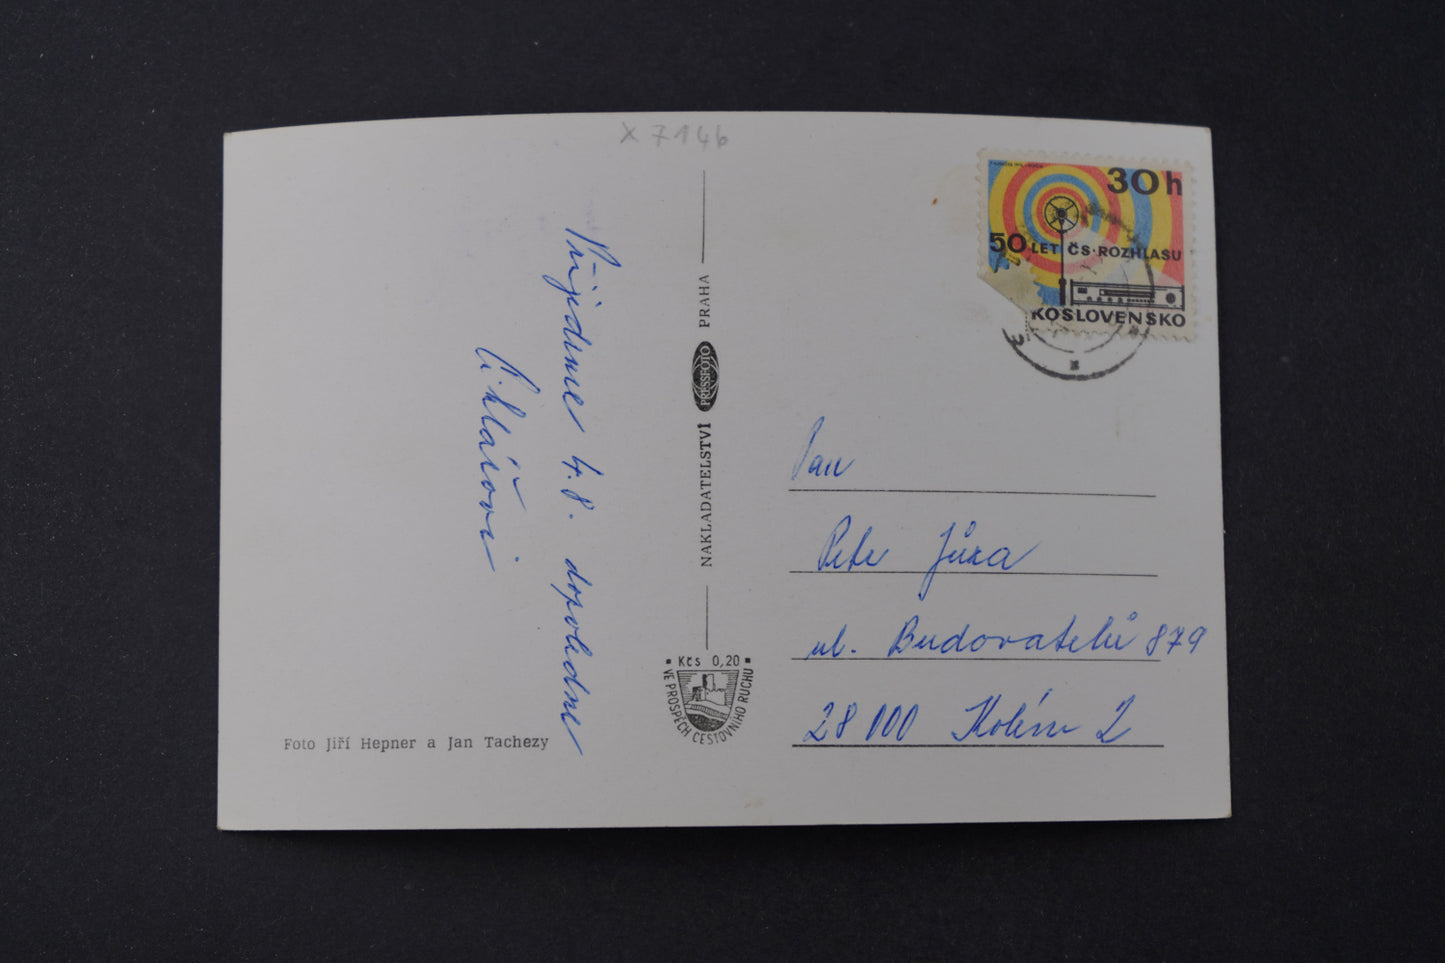 x 7146
30 h
50 LET ČS. ROZHLASU
KOSLOVENSKO
Přijedeme 4.8. dopoledne
Cihlářovi
NAKLADATELSTVÍ PRESSFOTO PRAHA
Kčs 0,20
VE PROSPĚCH CESTOVNÍHO RUCHU
Foto Jiří Hepner a Jan Tachezy
Pan
Petr Jůza
ul. Budovatelů 879
28 000 Kolín 2